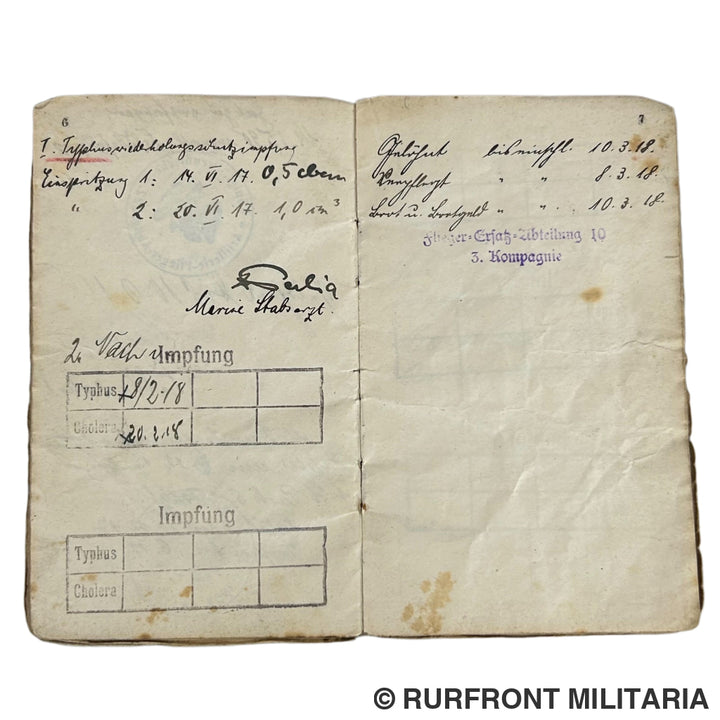 6
I. Typhuswiederholungsschutzimpfung
Einspritzung 1: 14. VI. 17. 0,5 cbcm
" 2: 20. VI. 17. 1,0 cm³
Marine Stabsarzt.
2. Nach Impfung
Typhus 8/2.18
Cholera 20.2.18
Impfung
Typhus
Cholera
7
Gelöhnt bis einschl. 10.3.18.
Verpflegt " " 8.3.18.
Brot u. Brotgeld " " 10.3.18.
Flieger-Ersatz-Abteilung 10
3. Kompagnie
© RURFRONT MILITARIA